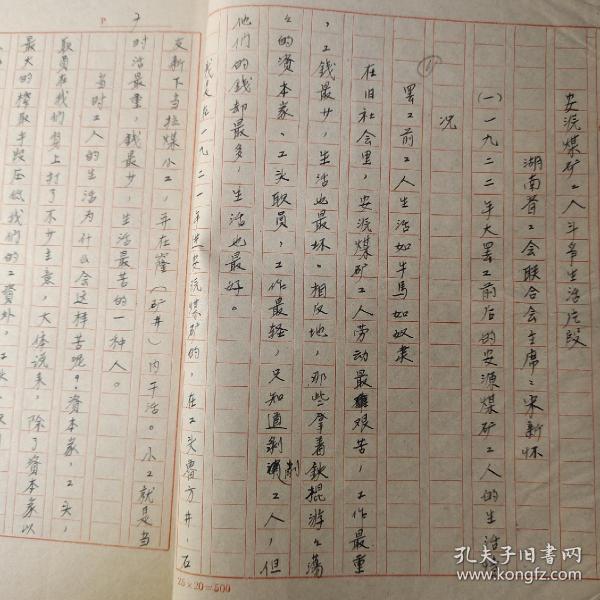 安源煤矿工人斗争生活片段
湖南省工会联合会主席：宋新怀
(一)一九二二年大罢工前后的安源煤矿工人的生活情
况
罢工前工人生活如牛馬如奴隶
在旧社会里，安源煤矿工人劳动最艰苦，工作最重
，工錢最少，生活也最坏。相反地，那些拿着鉄棍游游蕩
蕩的資本家、工头职員，工作最轻，只知道剥削工人，但
他們的錢却最多，生活也最好。
我是在一九二一年进安源煤矿的，在工头曹方井，在
25×20=500
P 2
支新下当拉煤小工，并在窿（矿井）内干活。小工就是当
时活最重，錢最少，生活最苦的一种人。
当时工人的生活为什么会这样苦呢？資本家，工头，
职員在我們身上打了不少主意，大体说来，除了資本家以
最大的榨取手段压低我們的工資外，工头
孔夫子旧书网
www.kongfz.com